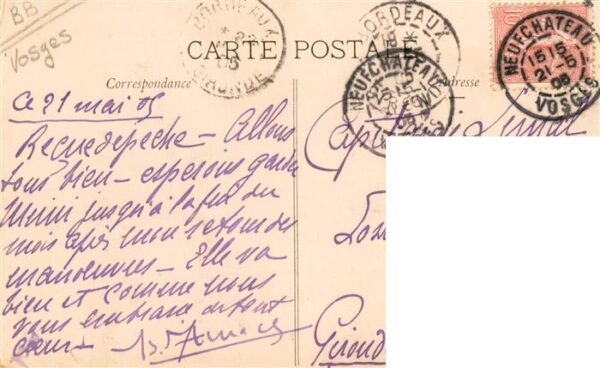 BB
Vosges
BORDEAUX
GIRONDE
05
CARTE POSTALE
BORDEAUX
10
NEUFCHATEAU
15 15
21 -5
05
VOSGES
NEUFCHATEAU
Correspondance
Adresse
Ce 21 mai 05
Reçu depeche - Allons
tous bien - esperons garder
Mimi jusqu'à la fin du
mois après mon retour des
manoeuvres - Elle va
bien et comme nous
vous embrasse de tout
cœur -
Gironde